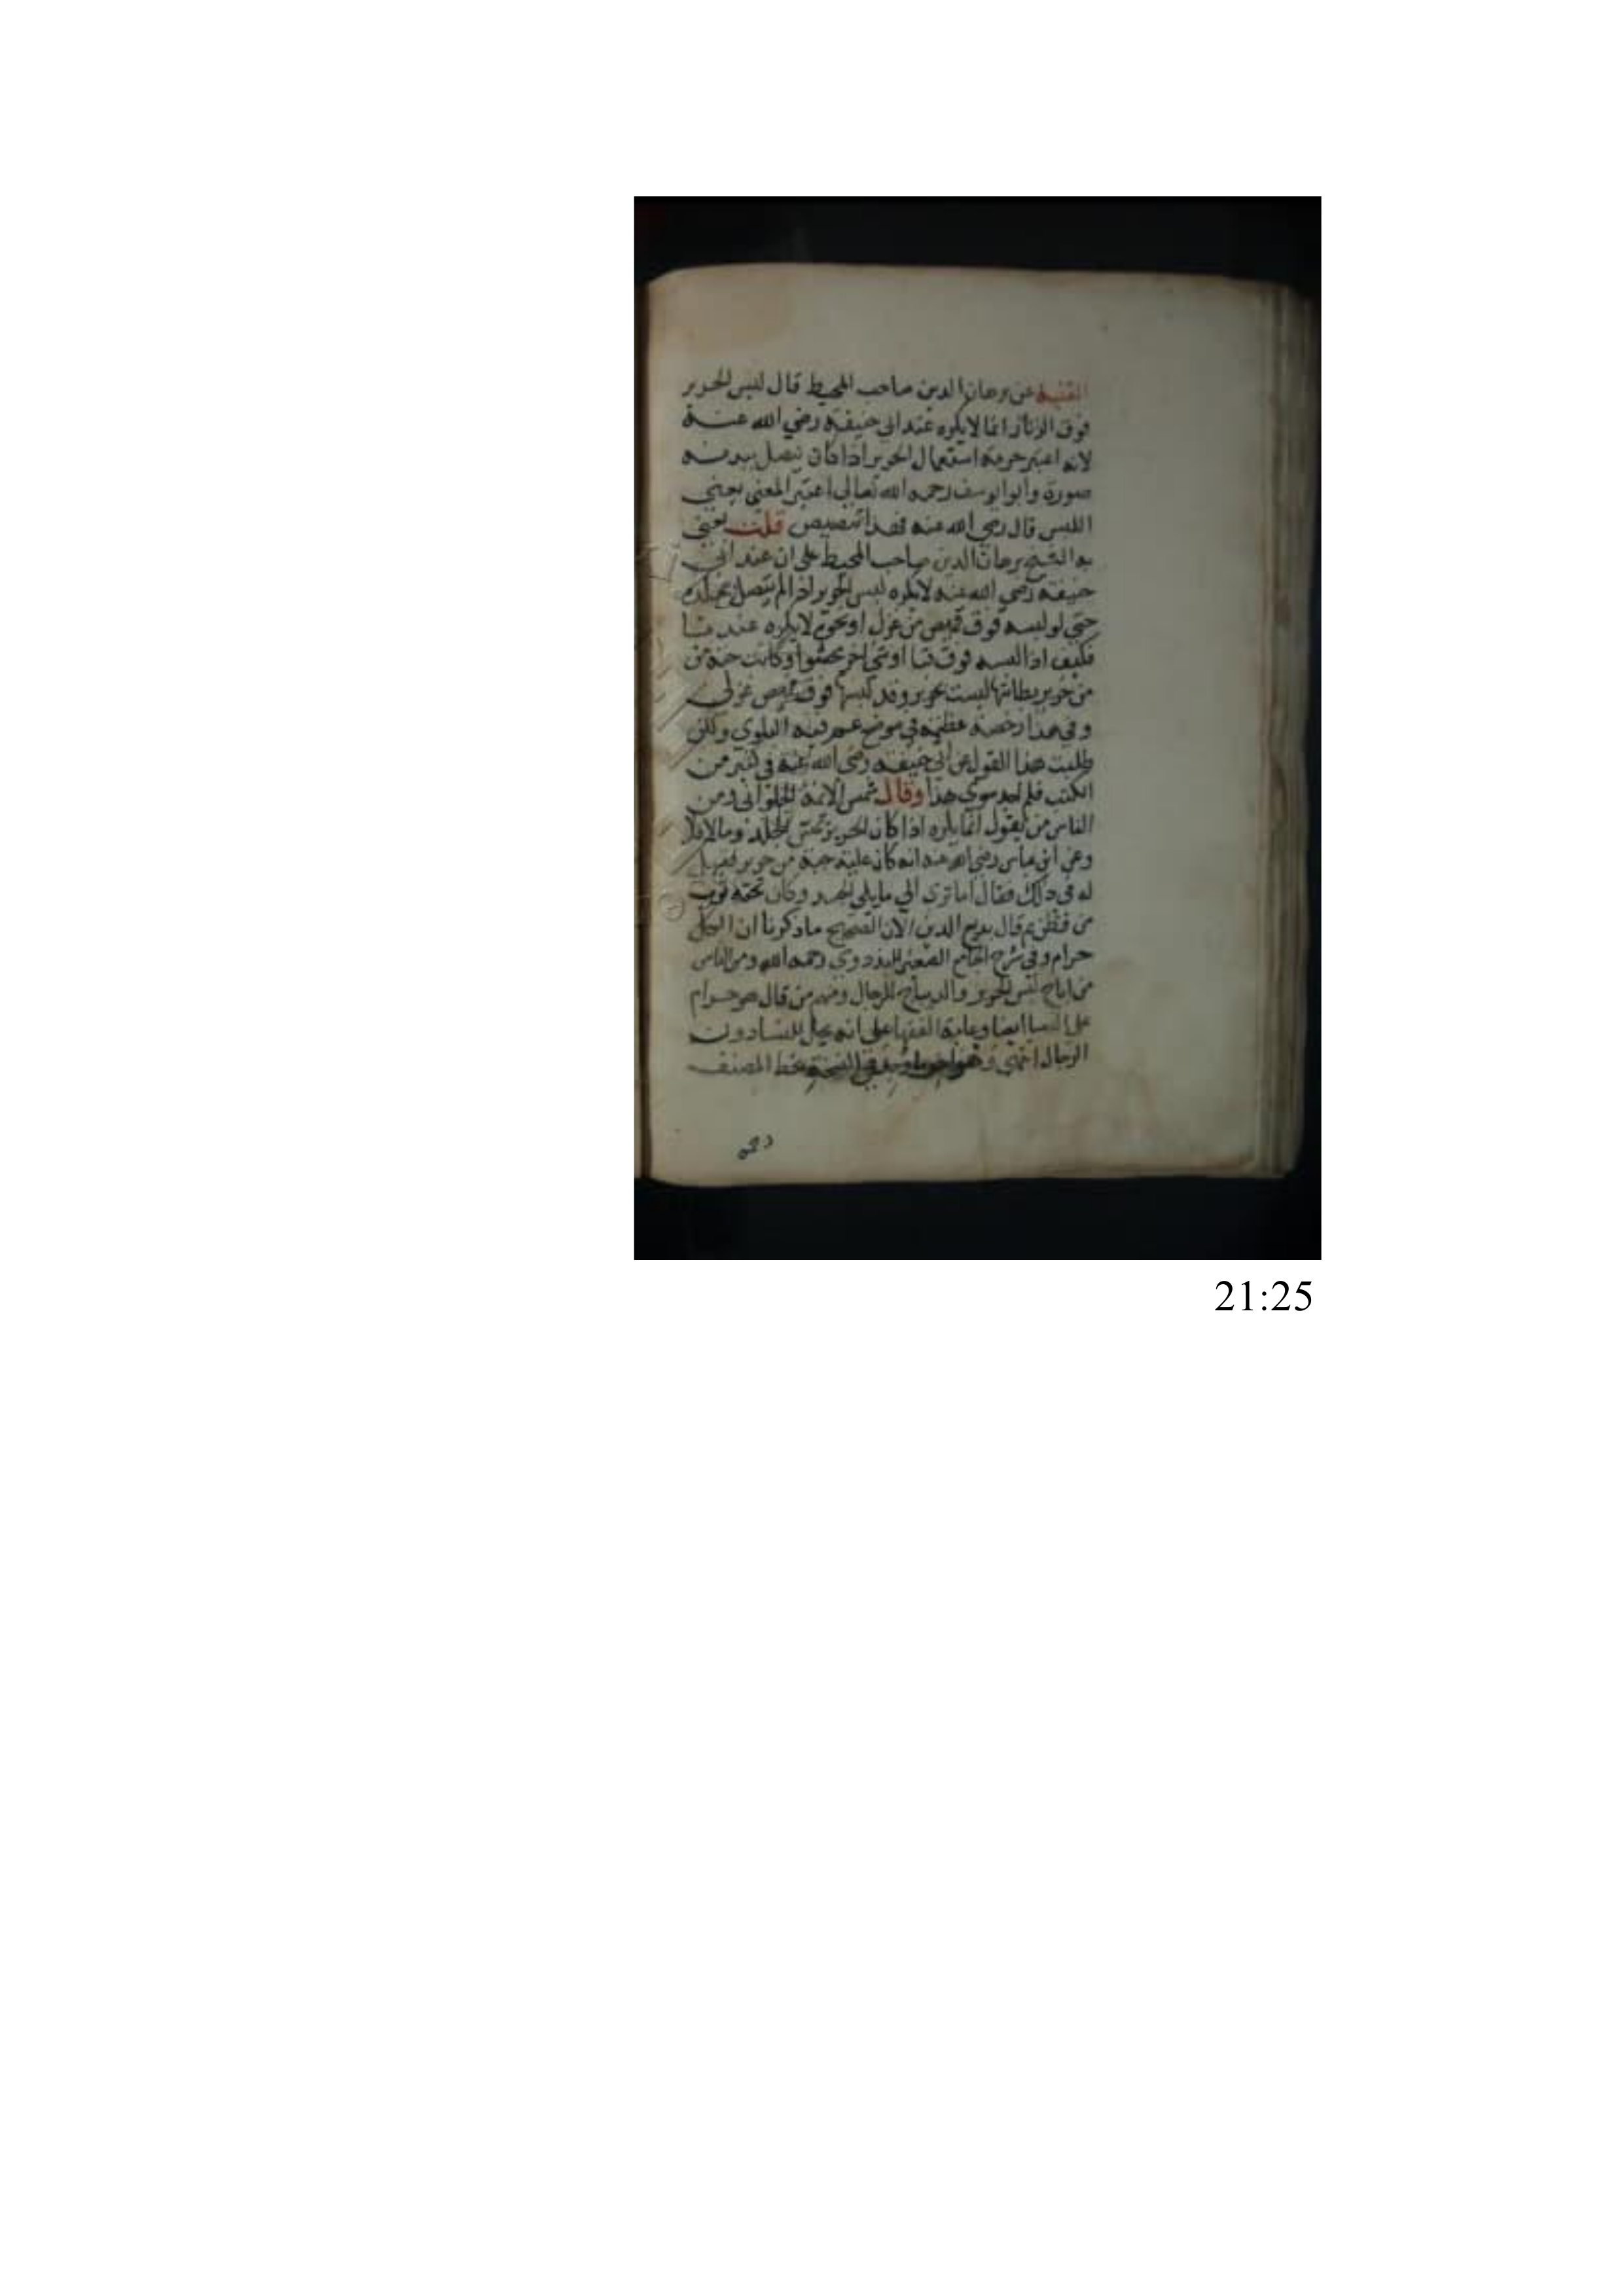 القنية عن برهان الدين صاحب المحيط قال لبس الحرير
فوق الدثار انما لا يكره عند ابي حنيفة رضي الله عنه
لانه اعتبر حرمة استعمال الحرير اذا كان يتصل ببدنه
صورة وابو يوسف رحمه الله تعالى اعتبر المعنى يعني
اللبس قال رضي الله عنه فهذا تنصيص قلت يعني
به الشيخ برهان الدين صاحب المحيط على ان عند ابي
حنيفة رضي الله عنه لا يكره لبس الحرير اذا لم يتصل بجلده
حتى لو لبسه فوق قميص من غزل او نحوه لا يكره عند
فكيف اذا لبسه فوق قبا او شي اخر محشوا او كانت جبة من
من حرير بطانتها ليست بحرير وقد لبسها فوق قميص غزلي
وفي هذا رخصة عظيمة في موضع عم فيه البلوي ولكن
طلبت هذا القول عن ابي حنيفة رضي الله عنه في كثير من
الكتب فلم اجد سوي هذا وقال شمس الائمة الحلواني ومن
الناس من يقول انما يكره اذا كان الحرير يمس الجلد وما لا فلا
وعن ابن عباس رضي الله عنه انه كان عليه جبة من حرير فقيل
له في ذلك فقال اما تري الي ما يلي الجسد وكان تحته ثوب
من قطن ثم قال بديع الدين الان الصحيح ما ذكرنا ان الكل
حرام وفي شرح الجامع الصغير للبزدوي رحمه الله ومن الناس
من اباح لبس الحرير والديباج للرجال ومنهم من قال هو حرام
على النسا ايضا وعامة الفقها على انه يحل للنسا دون
الرجال انتهي النسخة بخط المصنف
رحمه
21:25